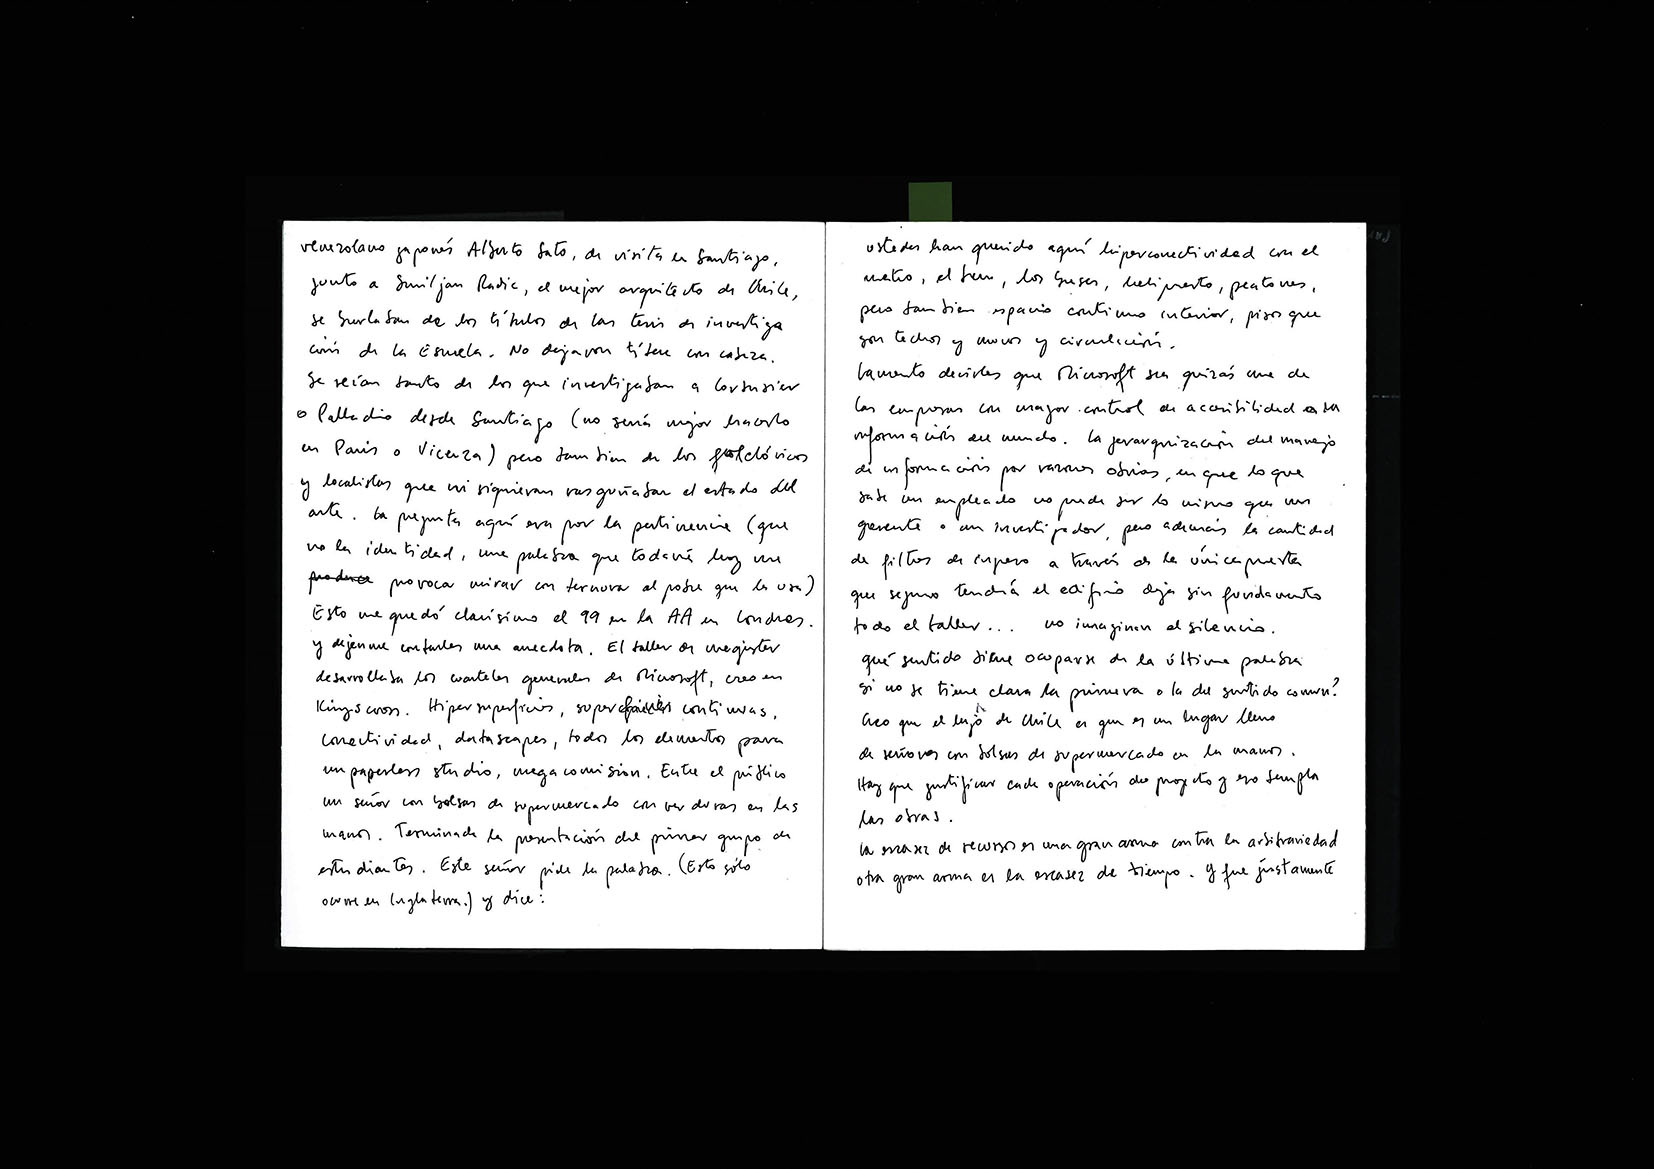 venezolano japonés Alberto Sato, de visita en Santiago,
junto a Smiljan Radic, el mejor arquitecto de Chile,
se burlaban de los títulos de las tesis de investiga
ción de la Escuela. No dejaron títere con cabeza.
Se reían tanto de los que investigaban a Corbusier
o Palladio desde Santiago (no sería mejor hacerlo
en París o Vicenza) pero tambien de los folclóricos
y localistas que ni siquieran rasguñaban el estado del
arte. La pregunta aquí era por la pertinencia (que
no la identidad, una palabra que todavía hoy me
produce provoca mirar con ternura al pobre que la usa)
Esto me quedó clarísimo el 99 en la AA en Londres.
y déjenme contarles una anecdota. El taller de magister
desarrollaba los cuarteles generales de Microsoft, creo en
Kings cross. Hipersuperficies, superficies continuas,
conectividad, datascapes, todos los elementos para
un paperless studio, mega comision. Entre el público
un señor con bolsas de supermercado con verduras en las
manos. Terminada la presentación del primer grupo de
estudiantes. Este señor pide la palabra. (Esto sólo
ocurre en Inglaterra.) y dice:
ustedes han querido aquí hiperconectividad con el
metro, el tren, los buses, helipuerto, peatones,
pero tambien espacio continuo interior, pisos que
son techos y muros y circulación.
Lamento decirles que Microsoft sea quizás una de
las empresas con mayor control de accesibilidad a su
información del mundo. La jerarquización del manejo
de información por razones obvias, en que lo que
sabe un empleado no puede ser lo mismo que un
gerente o un investigador, pero además la cantidad
de filtros de ingreso a través de la única puerta
que seguro tendría el edificio deja sin fundamento
todo el taller... no imaginan el silencio.
qué sentido tiene ocuparse de la última palabra
si no se tiene clara la primera o la del sentido comun?
Creo que el lujo de Chile es que es un lugar lleno
de señores con bolsas de supermercado en la manos.
Hay que justificar cada operación de proyecto y eso templa
las obras.
La escasez de recursos es una gran arma contra la arbitrariedad
otra gran arma es la escasez de tiempo. Y fue justamente